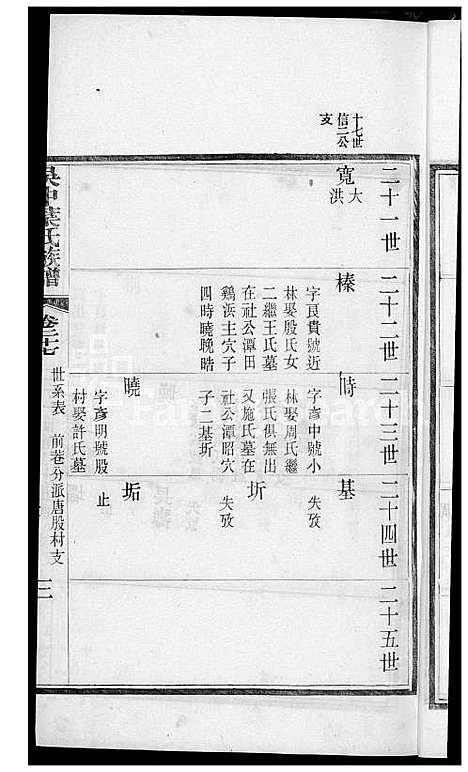 十七世
信二公
支
二十一世
二十二世
二十三世
二十四世
二十五世
寬
大
洪
榛
字良貴號近
林娶殷氏女
二繼王氏墓
在社公潭田
鷄浜主穴子
四時曉晚晴
時
字彥中號小
林娶周氏繼
張氏俱無出
又施氏墓在
社公潭昭穴
子二基圻
基
失攷
圻
失攷
曉
字彥明號殷
村娶許氏墓
垢
止
吳中葉氏族譜
卷二十七
世系表
前巷分派唐股村支
三